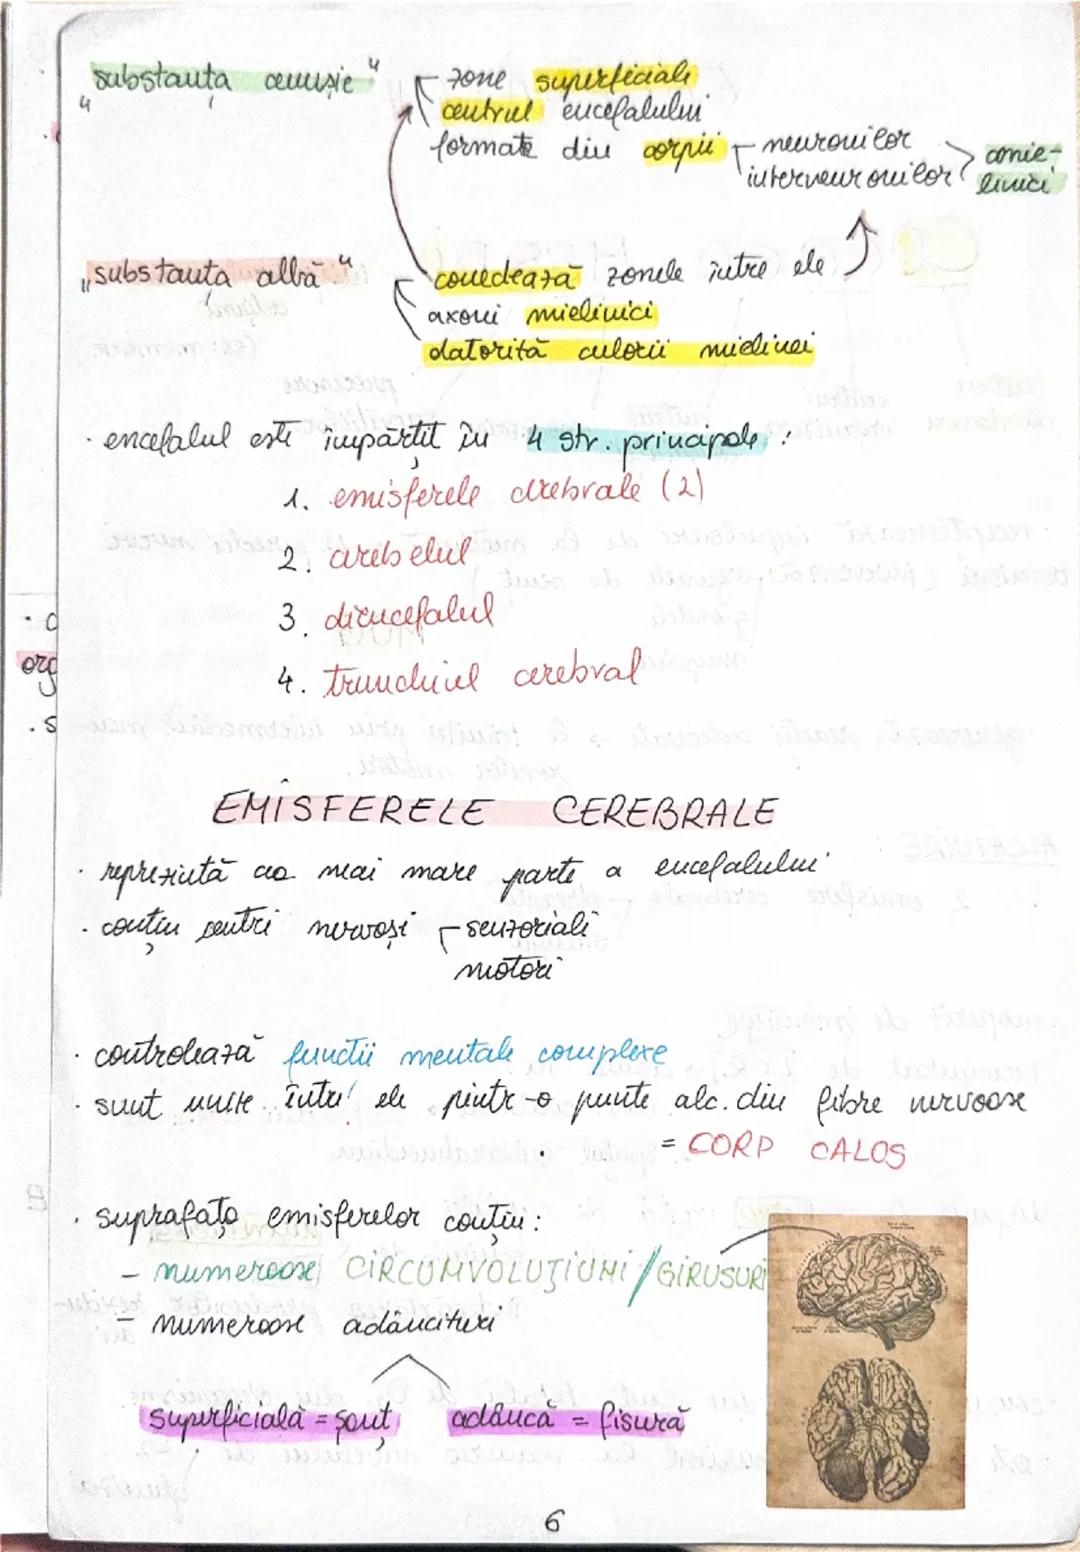 „substanța cenușie“
zone superficiale
centrul encefalului
formate din corpii
neuronilor
interneuronilor
amie-
linici
„substanța albă“
conectează zonele între ele
axoni mielinici
datorită culorii mielinei
· encefalul este împărțit în 4 str. principale :
1. emisferele cerebrale (2)
2. cerebelul
3. diencefalul
4. trunchiul cerebral
org
EMISFERELE CEREBRALE
· reprezintă cea mai mare parte a encefalului
· conțin centri nervoși
senzoriali
motori
· controlează funcții mentale complexe
· sunt unite între ele printr-o punte alc. din fibre nervoase
= CORP CALOS
· suprafața emisferelor conțin :
- numeroase CIRCUMVOLUȚIUNI / GIRUSURI
- numeroase adâncituri
superficială = șanț
adâncă = fisură
6